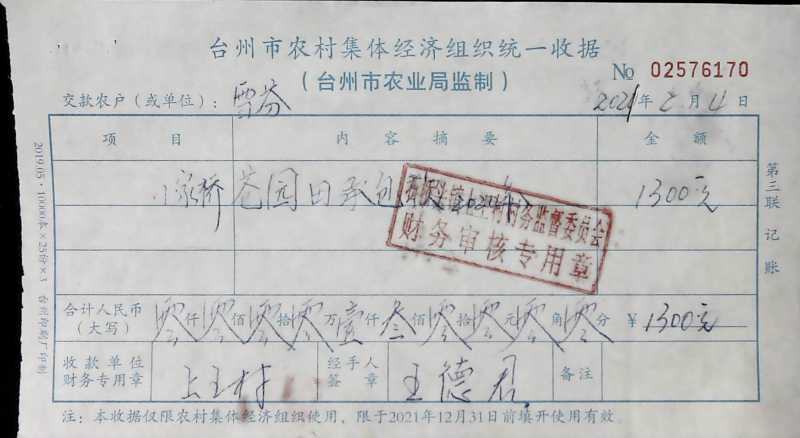 台州市农村集体经济组织统一收据
（台州市农业局监制）
No 02576170
交款农户（或单位）：雪芬 2021年2月4日
项目 内容摘要 金额
小家桥 苍园田承包 1300元
村务监督委员会
财务审核专用章
合计人民币（大写） 零仟零佰零拾零万壹仟叁佰零拾零元零角零分 ¥1300元
收款单位财务专用章 上王村 经手人签章 王德君 备注
注：本收据仅限农村集体经济组织使用，限于2021年12月31日前填开使用有效。
第三联 记账
2019.05·10000本×25份×3 台州印刷厂印制